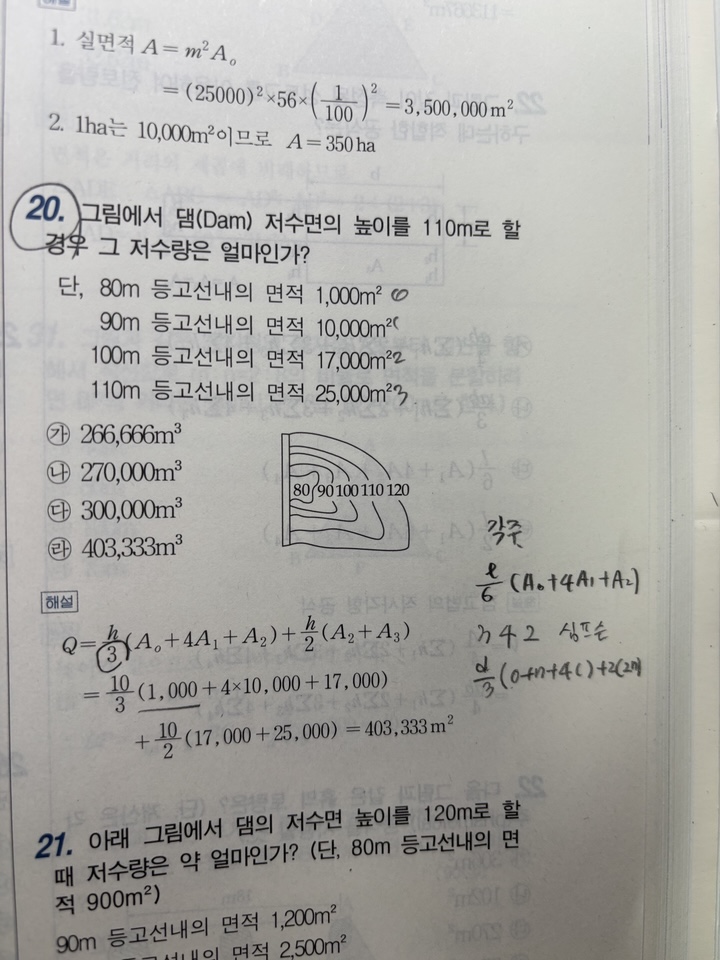 해설
1. 실면적 A = m²A₀
= (25000)²×56×(1/100)² = 3,500,000m²
2. 1ha는 10,000m²이므로 A = 350ha
20. 그림에서 댐(Dam) 저수면의 높이를 110m로 할
경우 그 저수량은 얼마인가?
단, 80m 등고선내의 면적 1,000m² 0
90m 등고선내의 면적 10,000m² 1
100m 등고선내의 면적 17,000m² 2
110m 등고선내의 면적 25,000m² 3
㉮ 266,666m³
㉯ 270,000m³
㉰ 300,000m³
㉱ 403,333m³
80 90 100 110 120
각주
ℓ/6 (A₀+4A₁+A₂)
해설
Q = h/3 (A₀ + 4A₁ + A₂) + h/2 (A₂ + A₃)
342 심프슨
= 10/3 (1,000 + 4×10,000 + 17,000)
d/3 (0+n+4( )+2(2n)
+ 10/2 (17,000 + 25,000) = 403,333m²
21. 아래 그림에서 댐의 저수면 높이를 120m로 할
때 저수량은 약 얼마인가? (단, 80m 등고선내의 면
적 900m²)
90m 등고선내의 면적 1,200m²
등고선내의 면적 2,500m²